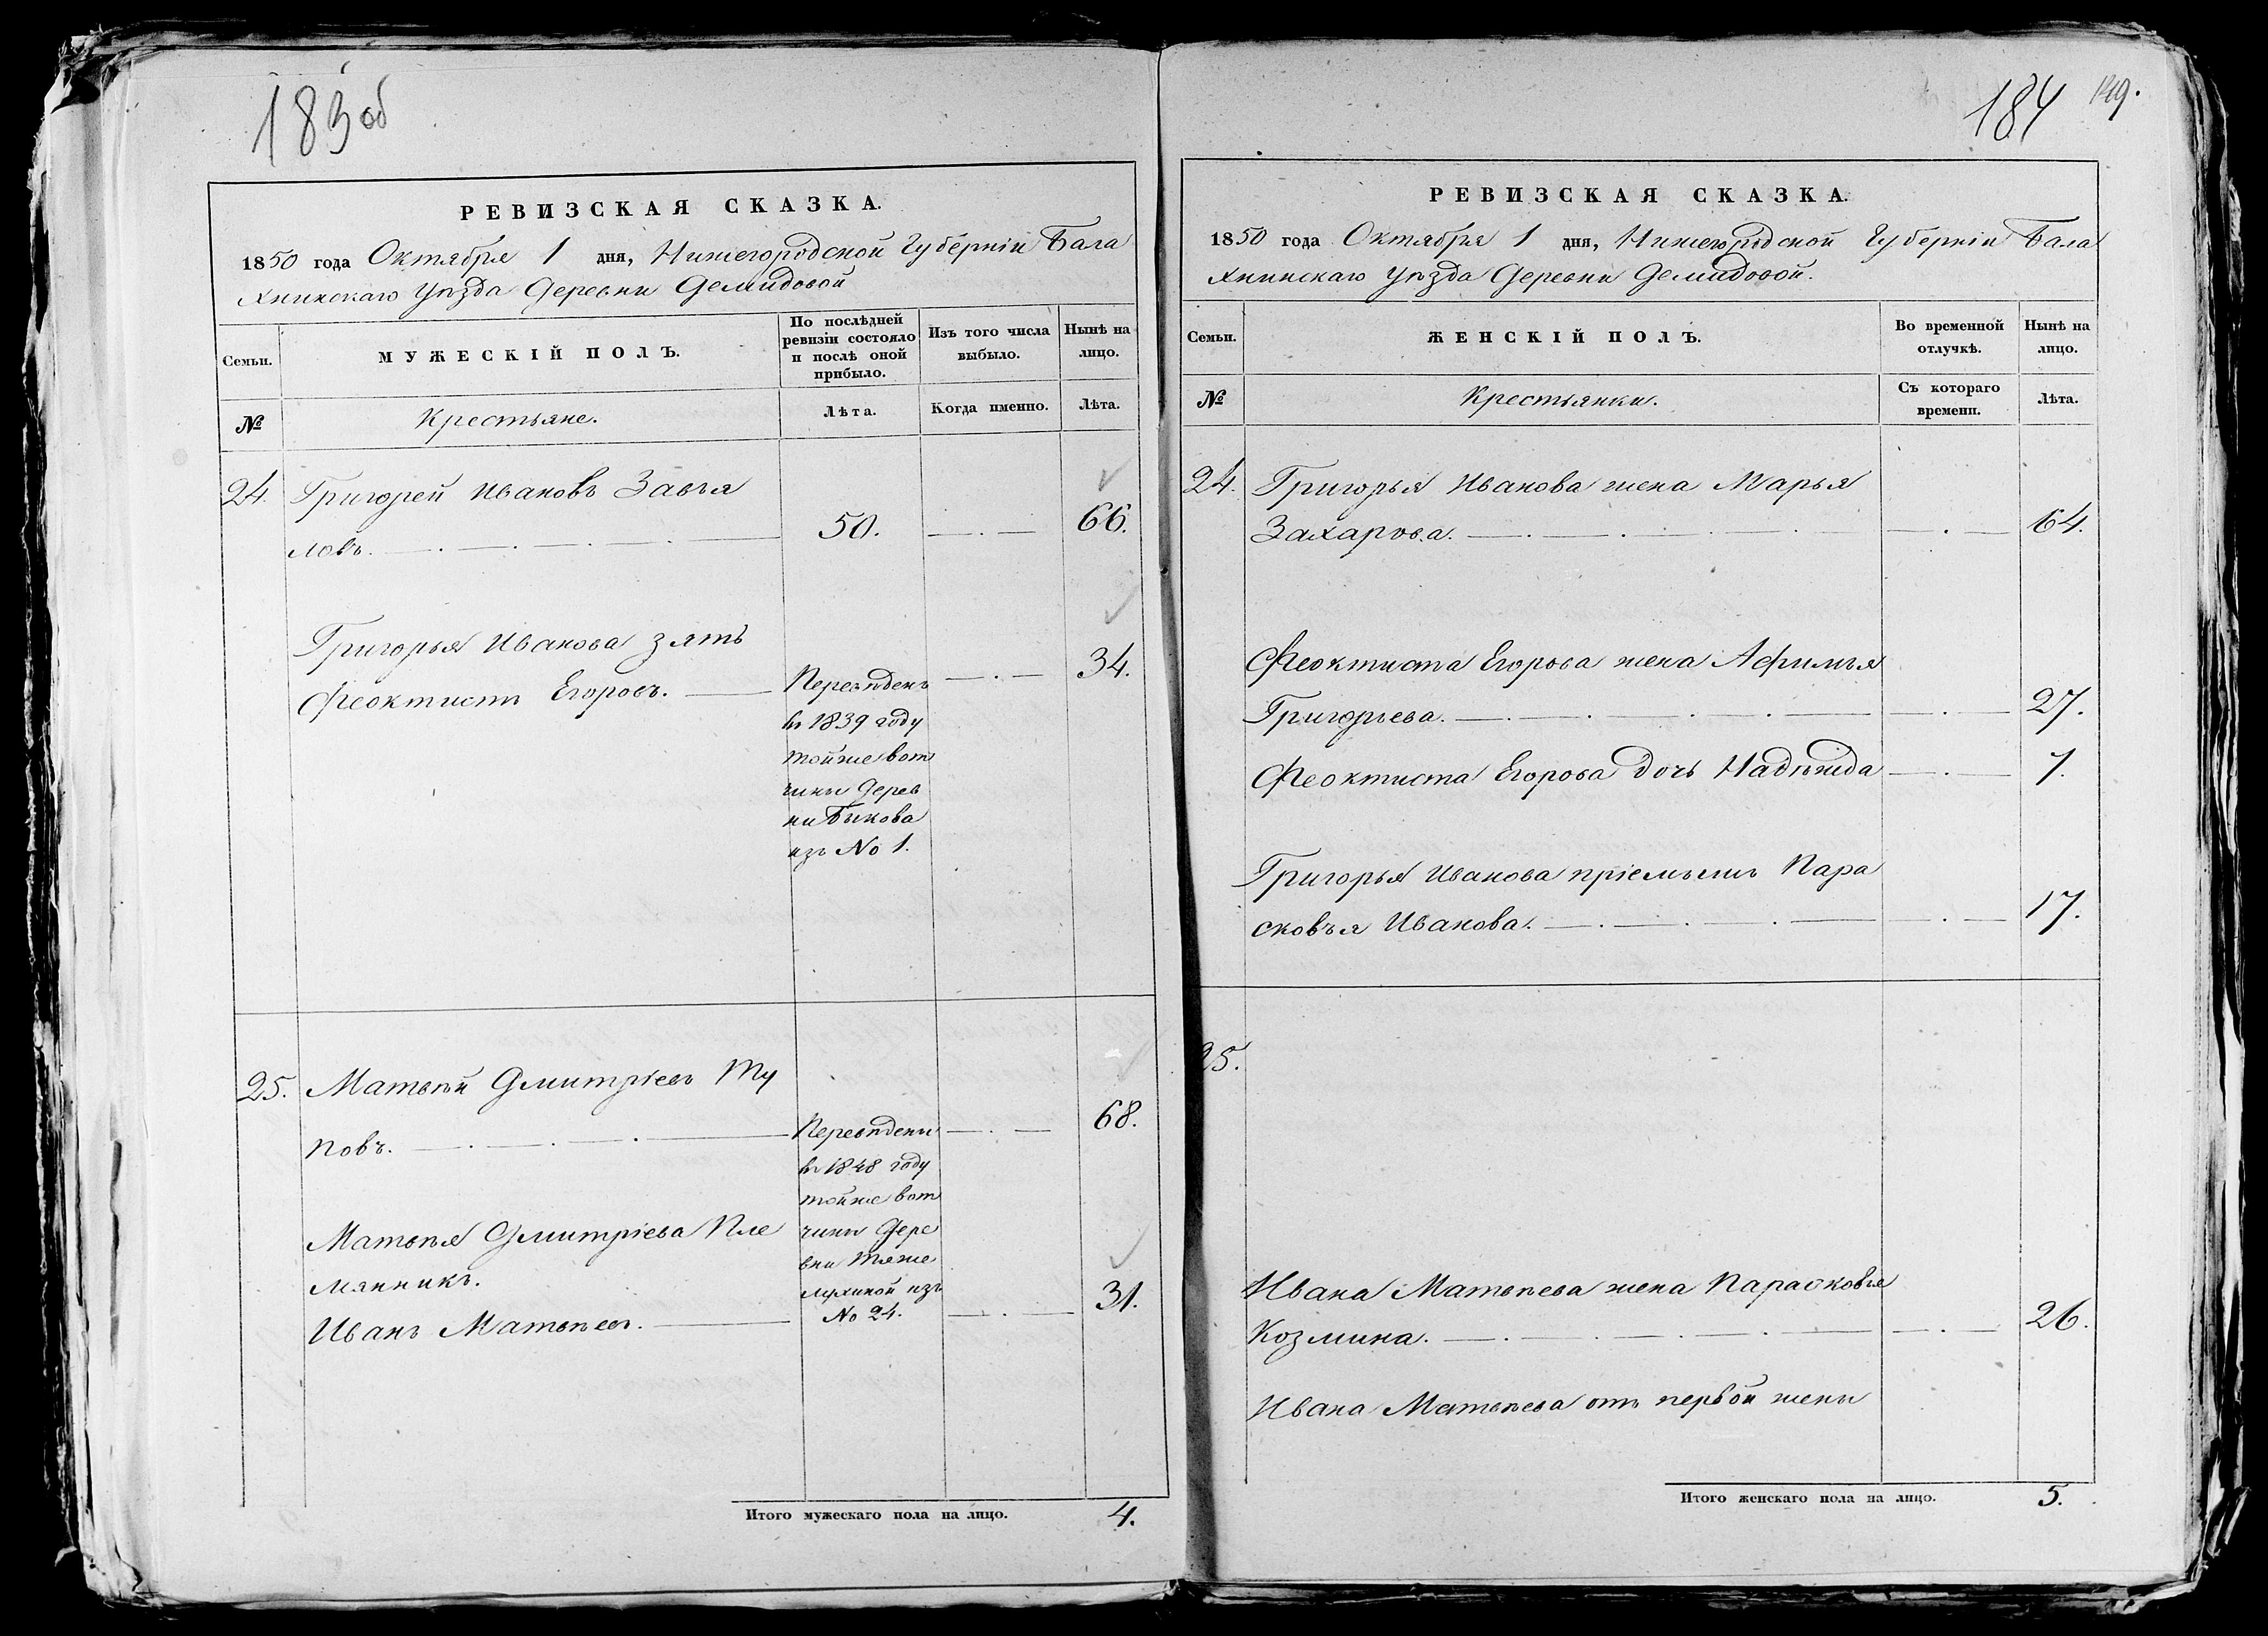 183об
РЕВИЗСКАЯ СКАЗКА.
1850 года Октября 1 дня, Нижегородской Губерніи Бала
хнинскаго Уѣзда Деревни Демидовой
Семьи.
МУЖЕСКІЙ ПОЛЪ.
По послѣдней
ревизіи состояло
и послѣ оной
прибыло.
Изъ того числа
выбыло.
Нынѣ на
лицо.
№
Крестьяне.
Лѣта.
Когда именно.
Лѣта.
24. Григорей Ивановъ Завья
ловъ. 50. 66.
Григорья Иванова зять
Феоктистъ Егоровъ. Перевѣденъ 34.
въ 1839 году
тойже вот
чины дерев
ни Быкова
изъ No 1.
25. Матвѣй Дмитріевъ Ту
повъ. Перевѣдены 68.
въ 1848 году
тойже вот
Матвѣя Дмитріева Пле чины Дере
вни Тяже
мянникъ.
лухиной изъ
Иванъ Матвѣевъ. No 24. 31.
Итого мужескаго пола на лицо. 4.
184
РЕВИЗСКАЯ СКАЗКА.
1850 года Октября 1 дня, Нижегородской Губерніи Бала
хнинскаго Уѣзда Деревни Демидовой.
Семьи.
ЖЕНСКІЙ ПОЛЪ.
Во временной
отлучкѣ.
Нынѣ на
лицо.
№
Крестьянки.
Съ котораго
времени.
Лѣта.
24. Григорья Иванова жена Марья
Захарова. 64.
Феоктиста Егорова жена Афимья
Григорьева. 27.
Феоктиста Егорова дочь Надѣжда 1.
Григорья Иванова пріемышъ Пара
сковья Иванова. 17.
25.
Ивана Матвѣева жена Парасковья
Козмина. 26.
Ивана Матвѣева отъ первой жены
Итого женскаго пола на лицо. 5.